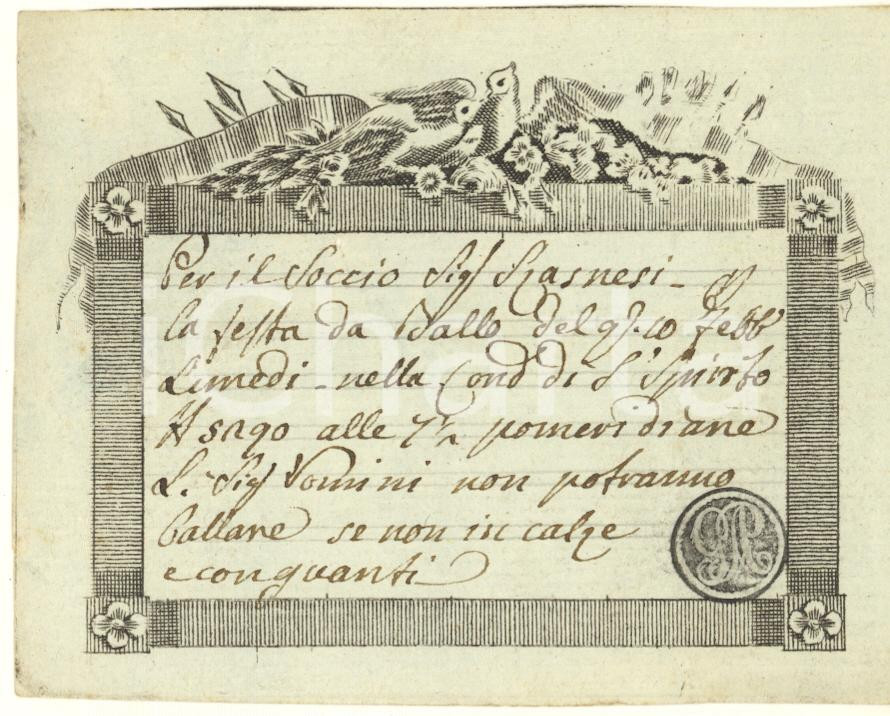 Per il Soccio Sig.r
la festa da Ballo del g. 10 Febb
Lunedi - nella Cond di S Spirito
alle 7½ pomeridiane
Sig Vomini non potranno
Ballare se non in calze
e con guanti